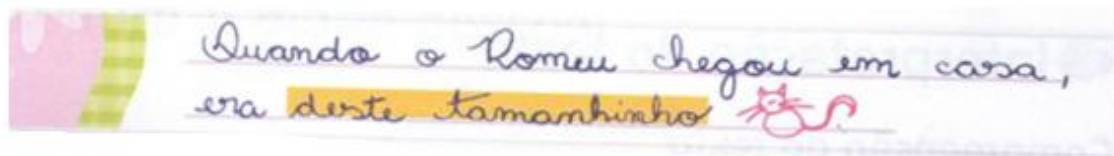 Quando o Romeu chegou em casa,
era deste tamanhinho